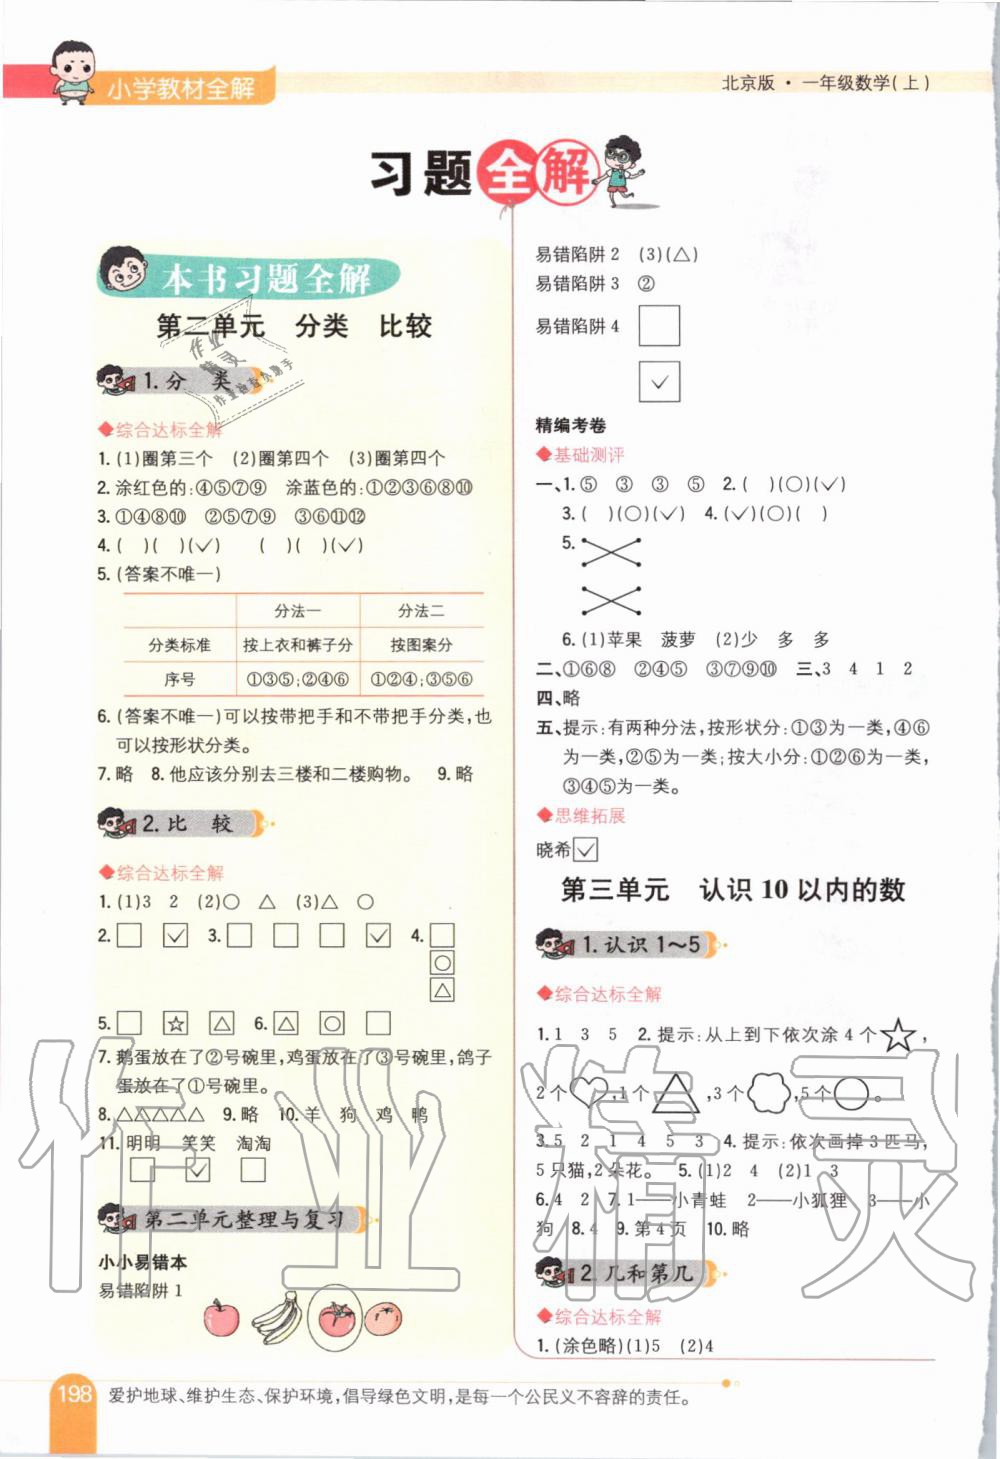 小学教材全解
北京版·一年级数学(上)
习题全解
本书习题全解
第二单元 分类 比较
1.分 类
◆综合达标全解
1.(1)圈第三个 (2)圈第四个 (3)圈第四个
2.涂红色的:④⑤⑦⑨ 涂蓝色的:①②③⑥⑧⑩
3.①④⑧⑩ ②⑤⑦⑨ ③⑥⑪⑫
4.( )( )(✓) ( )( )(✓)
5.(答案不唯一)
分法一 分法二
分类标准 按上衣和裤子分 按图案分
序号 ①③⑤;②④⑥ ①②④;③⑤⑥
6.(答案不唯一)可以按带把手和不带把手分类,也
可以按形状分类。
7.略 8.他应该分别去三楼和二楼购物。 9.略
2.比 较
◆综合达标全解
1.(1)3 2 (2)○ △ (3)△ ○
2.□ ☑ 3.□ □ □ ☑ 4.□
○
△
5.□ ☆ △ 6.△ ○ □
7.鹅蛋放在了②号碗里,鸡蛋放在了③号碗里,鸽子
蛋放在了①号碗里。
8.△△△△△ 9.略 10.羊 狗 鸡 鸭
11.明明 笑笑 淘淘
□ ☑ □
第二单元整理与复习
小小易错本
易错陷阱1
易错陷阱2 (3)(△)
易错陷阱3 ②
易错陷阱4 □
☑
精编考卷
◆基础测评
一、1.⑤ ③ ③ ⑤ 2.( )(○)(✓)
3.( )(○)(✓) 4.(✓)(○)( )
5.
6.(1)苹果 菠萝 (2)少 多 多
二、①⑥⑧ ②④⑤ ③⑦⑨⑩ 三、3 4 1 2
四、略
五、提示:有两种分法,按形状分:①③为一类,④⑥
为一类,②⑤为一类;按大小分:①②⑥为一类,
③④⑤为一类。
◆思维拓展
晓希☑
第三单元 认识10以内的数
1.认识1～5
◆综合达标全解
1.1 3 5 2.提示:从上到下依次涂4个☆,
2个♡,1个△,3个,5个○。
3.5 2 1 4 5 3 4.提示:依次画掉3匹马,
5只猫,2朵花。 5.(1)2 4 (2)1 3
6.4 2 7.1——小青蛙 2——小狐狸 3——小
狗 8.4 9.第4页 10.略
2.几和第几
◆综合达标全解
1.(涂色略)(1)5 (2)4
198 爱护地球、维护生态、保护环境,倡导绿色文明,是每一个公民义不容辞的责任。
作业精灵
作业
精灵
作业检查好帮手